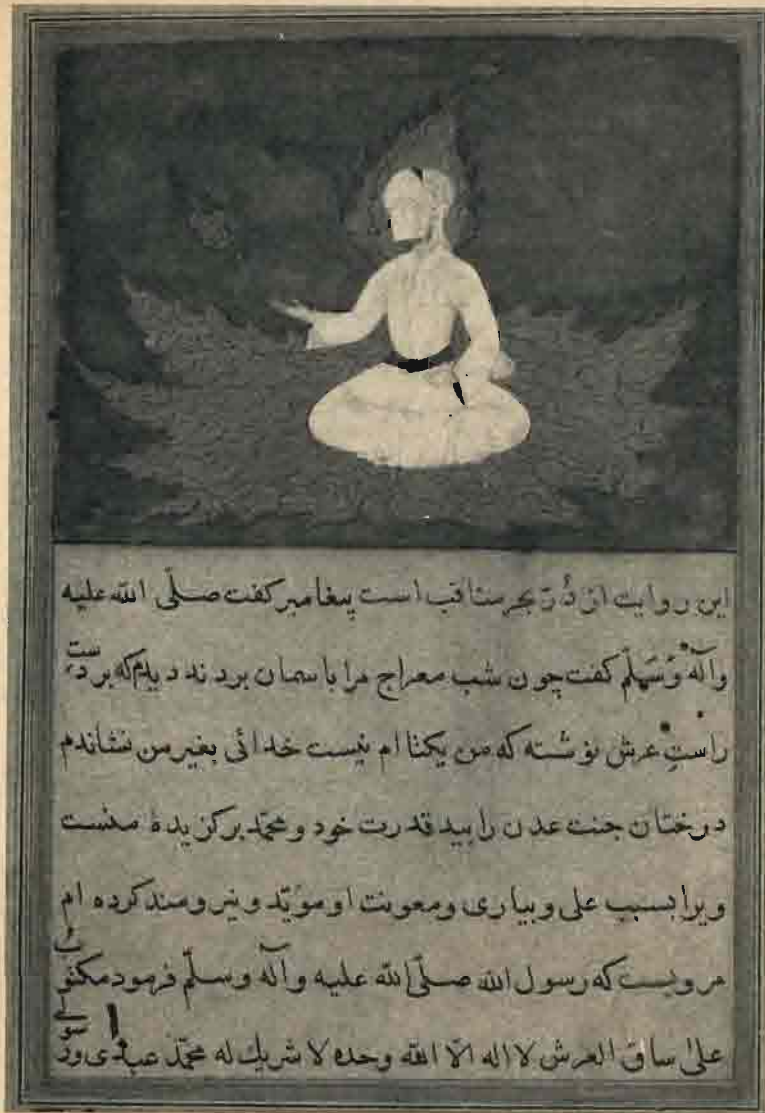 این روایت از دُرّ بحر مناقب است پیغامبر کفت صلّی الله علیه
وآلَه وَسَلّم کفت چون شب معراج مرا باسمان بردند دیدم که بر دست
راستِ عرش نوشته که من یکتا ام نیست خدائی بغیر من نشاندم
درختان جنت عدن را بید قدرت خود و محمّد برکزیدۀ منست
ویرا بسبب علی و بیاری و معونت او مؤیّد و نیرومند کرده ام
مرویست که رسول الله صلّی الله علیه وآلَه وسلّم فرمود مکتوبُ
علیٰ ساق العرش لا اله الّا الله وحده لا شریك له محمّد عبدی ورسولی